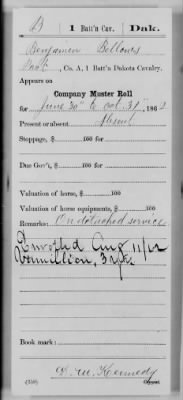 B | 1 Batt'n Cav. | Dak.
Benjamin Bellows
, Co. A, 1 Batt'n Dakota Cavalry.
Appears on
Company Muster Roll
for June 30" to Oct. 31", 1863
Present or absent Absent
Stoppage, $ 100 for
Due Gov't, $ 100 for
Valuation of horse, $ 100
Valuation of horse equipments, $ 100
Remarks: On detached service
Enrolled Aug 11/62
Vermillion, 3 yrs
Book mark:
D. M. Kennedy
(358) Copyist.